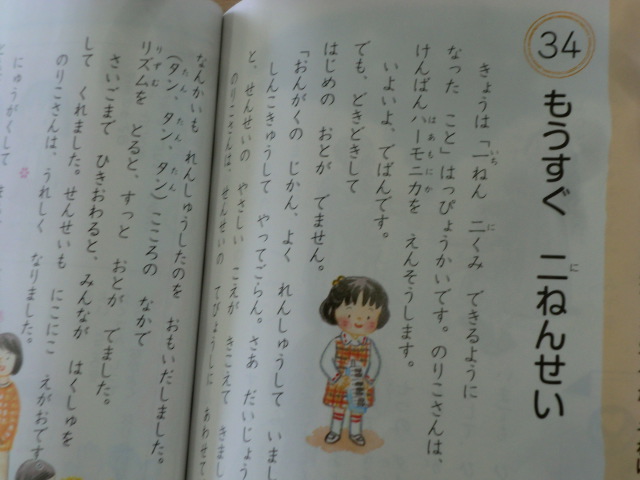 34
もうすぐ 二ねんせい
に
きょうは「一ねん 二くみ できるように
いち に
なった こと」はっぴょうかいです。のりこさんは、
けんばんハーモニカを えんそうします。
はあもにか
いよいよ、でばんです。
でも、どきどきして
はじめの おとが でません。
「おんがくの じかん、よく れんしゅうして いまし
しんこきゅうして やってごらん。さあ だいじょう
と、せんせいの やさしい こえが きこえて きまし
のりこさんは、せんせいの てびょうしに あわせて
なんかいも れんしゅうしたのを おもいだしました。
(タン、タン、タン)こころの なかで
たん たん たん
リズムを とると、すっと おとが でました。
りずむ
さいごまで ひきおわると、みんなが はくしゅを
して くれました。せんせいも にこにこ えがおです
のりこさんは、うれしく なりました。
にゅうがくして